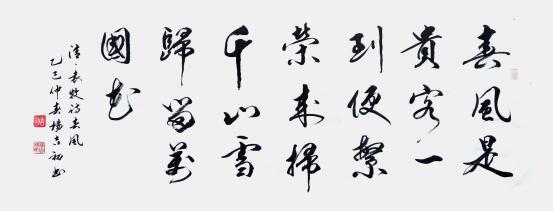 春風是
貴客一
到便繁
榮來掃
千山雪
歸留萬
國花
清·袁牧詩春風
乙巳仲春楊吉初书